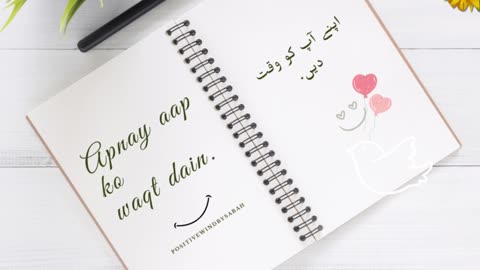 Apnay aap
ko
waqt dain.
POSITIVEWINDBYSABAH
اپنے آپ کو وقت
دیں.